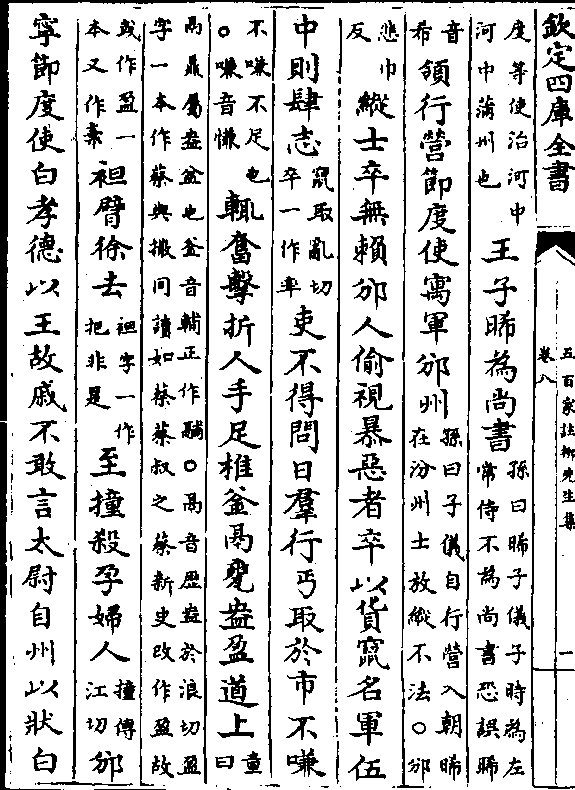 欽定四庫全書
五百家註柳先生集
卷八
一
度等使治河中
河中蒲州也
王子晞為尚書
孫曰晞子儀子時為左
常侍不為尚書恐誤晞
音
希
領行營節度使寓軍邠州
孫曰子儀自行營入朝晞
在汾州士放縱不法○邠
悲巾
反
縱士卒無賴邠人偷視暴惡者卒以貨竄名軍伍
中則肆志
竄取亂切
卒一作率
吏不得問日羣行丐取於市不嗛
不嗛不足也
○嗛音慊
輒奮擊折人手足椎釜鬲甕盎盈道上
童
曰
鬲鼎屬盎盆也釜音輔正作鬴○鬲音歷盎於浪切盈
字一本作蔡與間讀如蔡蔡叔之蔡新史改作盈故
或作盈一
本又作
袒臂徐去
袒字一作
把非是
至撞殺孕婦人
撞傳
江切
邠
寧節度使白孝德以王故戚不敢言太尉自州以狀白